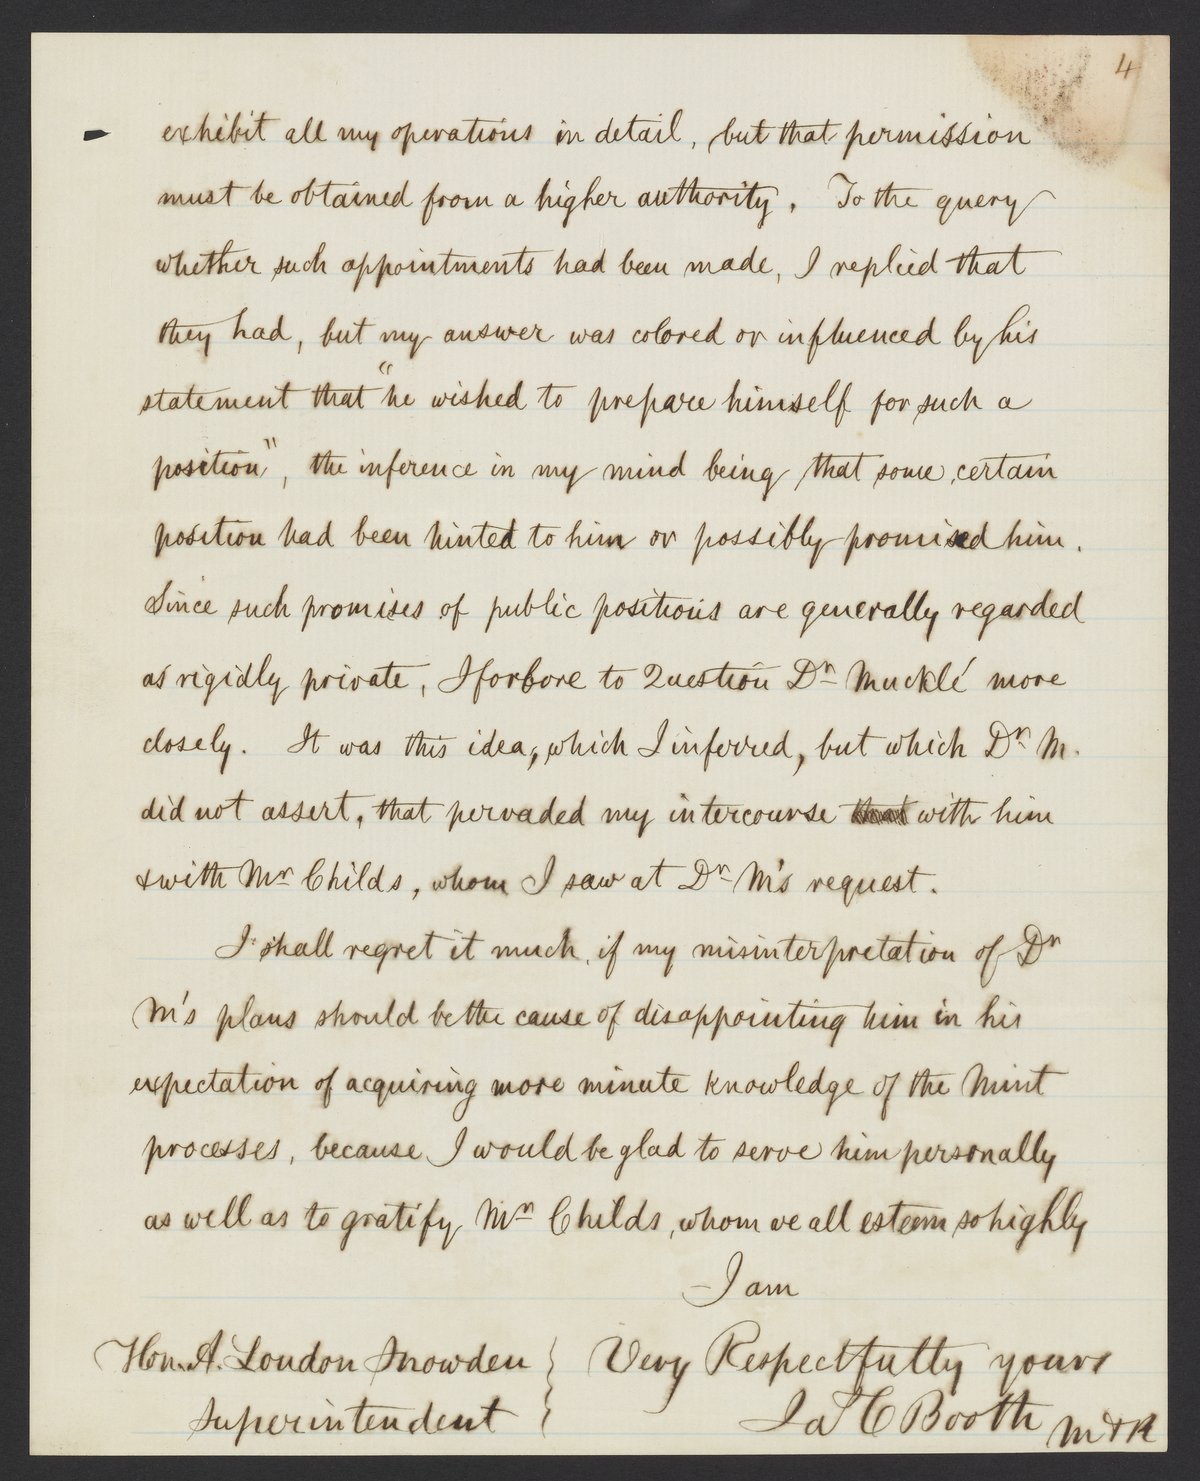 4
exhibit all my operations in detail, but that permission
must be obtained from a higher authority. To the query
whether such appointments had been made, I replied that
they had, but my answer was colored or influenced by his
statement that "he wished to prepare himself for such a
position", the inference in my mind being that some certain
position had been hinted to him or possibly promised him.
Since such promises of public positions are generally regarded
as rigidly private, I forbore to Question Dr Muckle more
closely. It was this idea, which I inferred, but which Dr M.
did not assert, that pervaded my intercourse with him
& with Mr Childs, whom I saw at Dr M's request.
I shall regret it much, if my misinterpretation of Dr
M's plans should be the cause of disappointing him in his
expectation of acquiring more minute knowledge of the Mint
processes, because I would be glad to serve him personally
as well as to gratify Mr Childs, whom we all esteem so highly
I am
Hon. A. Loudon Snowden } Very Respectfully yours
Superintendent } Ja C Booth M & R